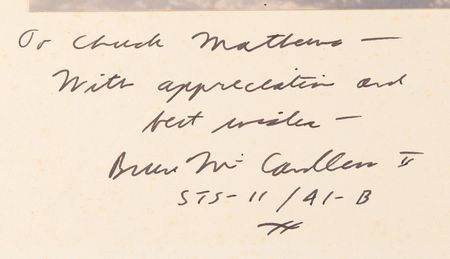 To Chuck Mathews —
With appreciation and
best wishes —
Bruce McCandless II
STS-11/41-B